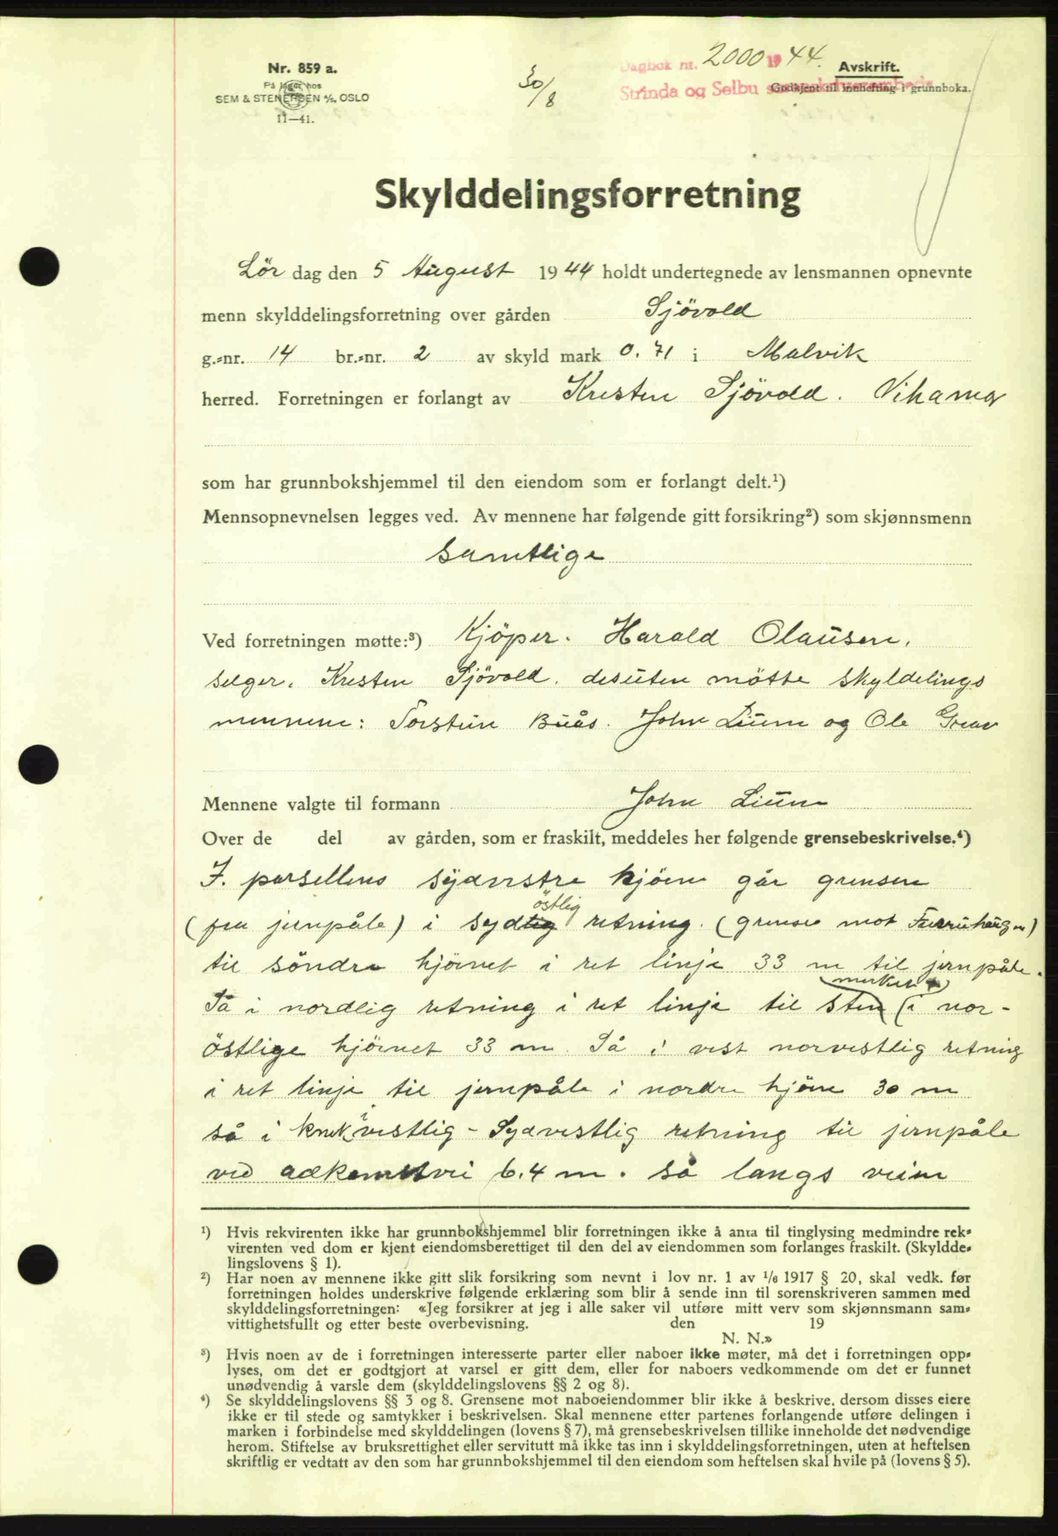 Nr. 859 a.
På lager hos
SEM & STENERSEN A/S, OSLO
11—41.
30/8
Dagbok nr. 2000 1944.
Strinda og Selbu
Avskrift.
Godkjent til innhefting i grunnboka.
Skylddelingsforretning
Lör dag den 5 August 1944 holdt undertegnede av lensmannen opnevnte
menn skylddelingsforretning over gården Sjövold
g.-nr. 14 br.-nr. 2 av skyld mark 0.71 i Malvik
herred. Forretningen er forlangt av Kresten Sjövold. Vihamar
som har grunnbokshjemmel til den eiendom som er forlangt delt.¹)
Mennsopnevnelsen legges ved. Av mennene har følgende gitt forsikring²) som skjønnsmenn
samtlige
Ved forretningen møtte:³) Kjöper. Harald Olausen,
selger. Kresten Sjövold. desuten mötte skyldelings
mennene: Torstein Buås. John Lium og Ole
Mennene valgte til formann John Lium
Over de del av gården, som er fraskilt, meddeles her følgende grensebeskrivelse.⁴)
I. parsellens sydvestre hjörne går grensen
(fra jernpåle) i sydlig östlig retning. (grense mot )
til söndre hjörnet i ret linje 33 m til jernpåle.
Så i nordlig retning i ret linje til merket sten (i nor-
östlige hjörnet 33 m. Så i vest norvestlig retning
i ret linje til jernpåle i nordre hjöne 30 m
så i knek i vestlig - Sydvestlig retning til jernpåle
ved adkomstvei 6.4 m. så langs veien
¹) Hvis rekvirenten ikke har grunnbokshjemmel blir forretningen ikke å anta til tinglysing medmindre rek-
virenten ved dom er kjent eiendomsberettiget til den del av eiendommen som forlanges fraskilt. (Skyldde-
lingslovens § 1).
²) Har noen av mennene ikke gitt slik forsikring som nevnt i lov nr. 1 av 1/6 1917 § 20, skal vedk. før
forretningen holdes underskrive følgende erklæring som blir å sende inn til sorenskriveren sammen med
skylddelingsforretningen: «Jeg forsikrer at jeg i alle saker vil utføre mitt verv som skjønnsmann sam-
vittighetsfullt og etter beste overbevisning. den 19
N. N.»
³) Hvis noen av de i forretningen interesserte parter eller naboer ikke møter, må det i forretningen opp-
lyses, om det er godtgjort at varsel er gitt dem, eller for naboers vedkommende om det er funnet
unødvendig å varsle dem (skylddelingslovens §§ 2 og 8).
⁴) Se skylddelingslovens §§ 3 og 8. Grensene mot naboeiendommer blir ikke å beskrive, dersom disses eiere
ikke er til stede og samtykker i beskrivelsen. Skal mennene etter partenes forlangende utføre delingen i
marken i forbindelse med skylddelingen (lovens § 7), må grensebeskrivelsen tillike inneholde det nødvendige
herom. Stiftelse av bruksrettighet eller servitutt må ikke tas inn i skylddelingsforretningen, uten at heftelsen
skriftlig er vedtatt av den som har grunnbokshjemmel til den eiendom som heftelsen skal hvile på (lovens § 5).